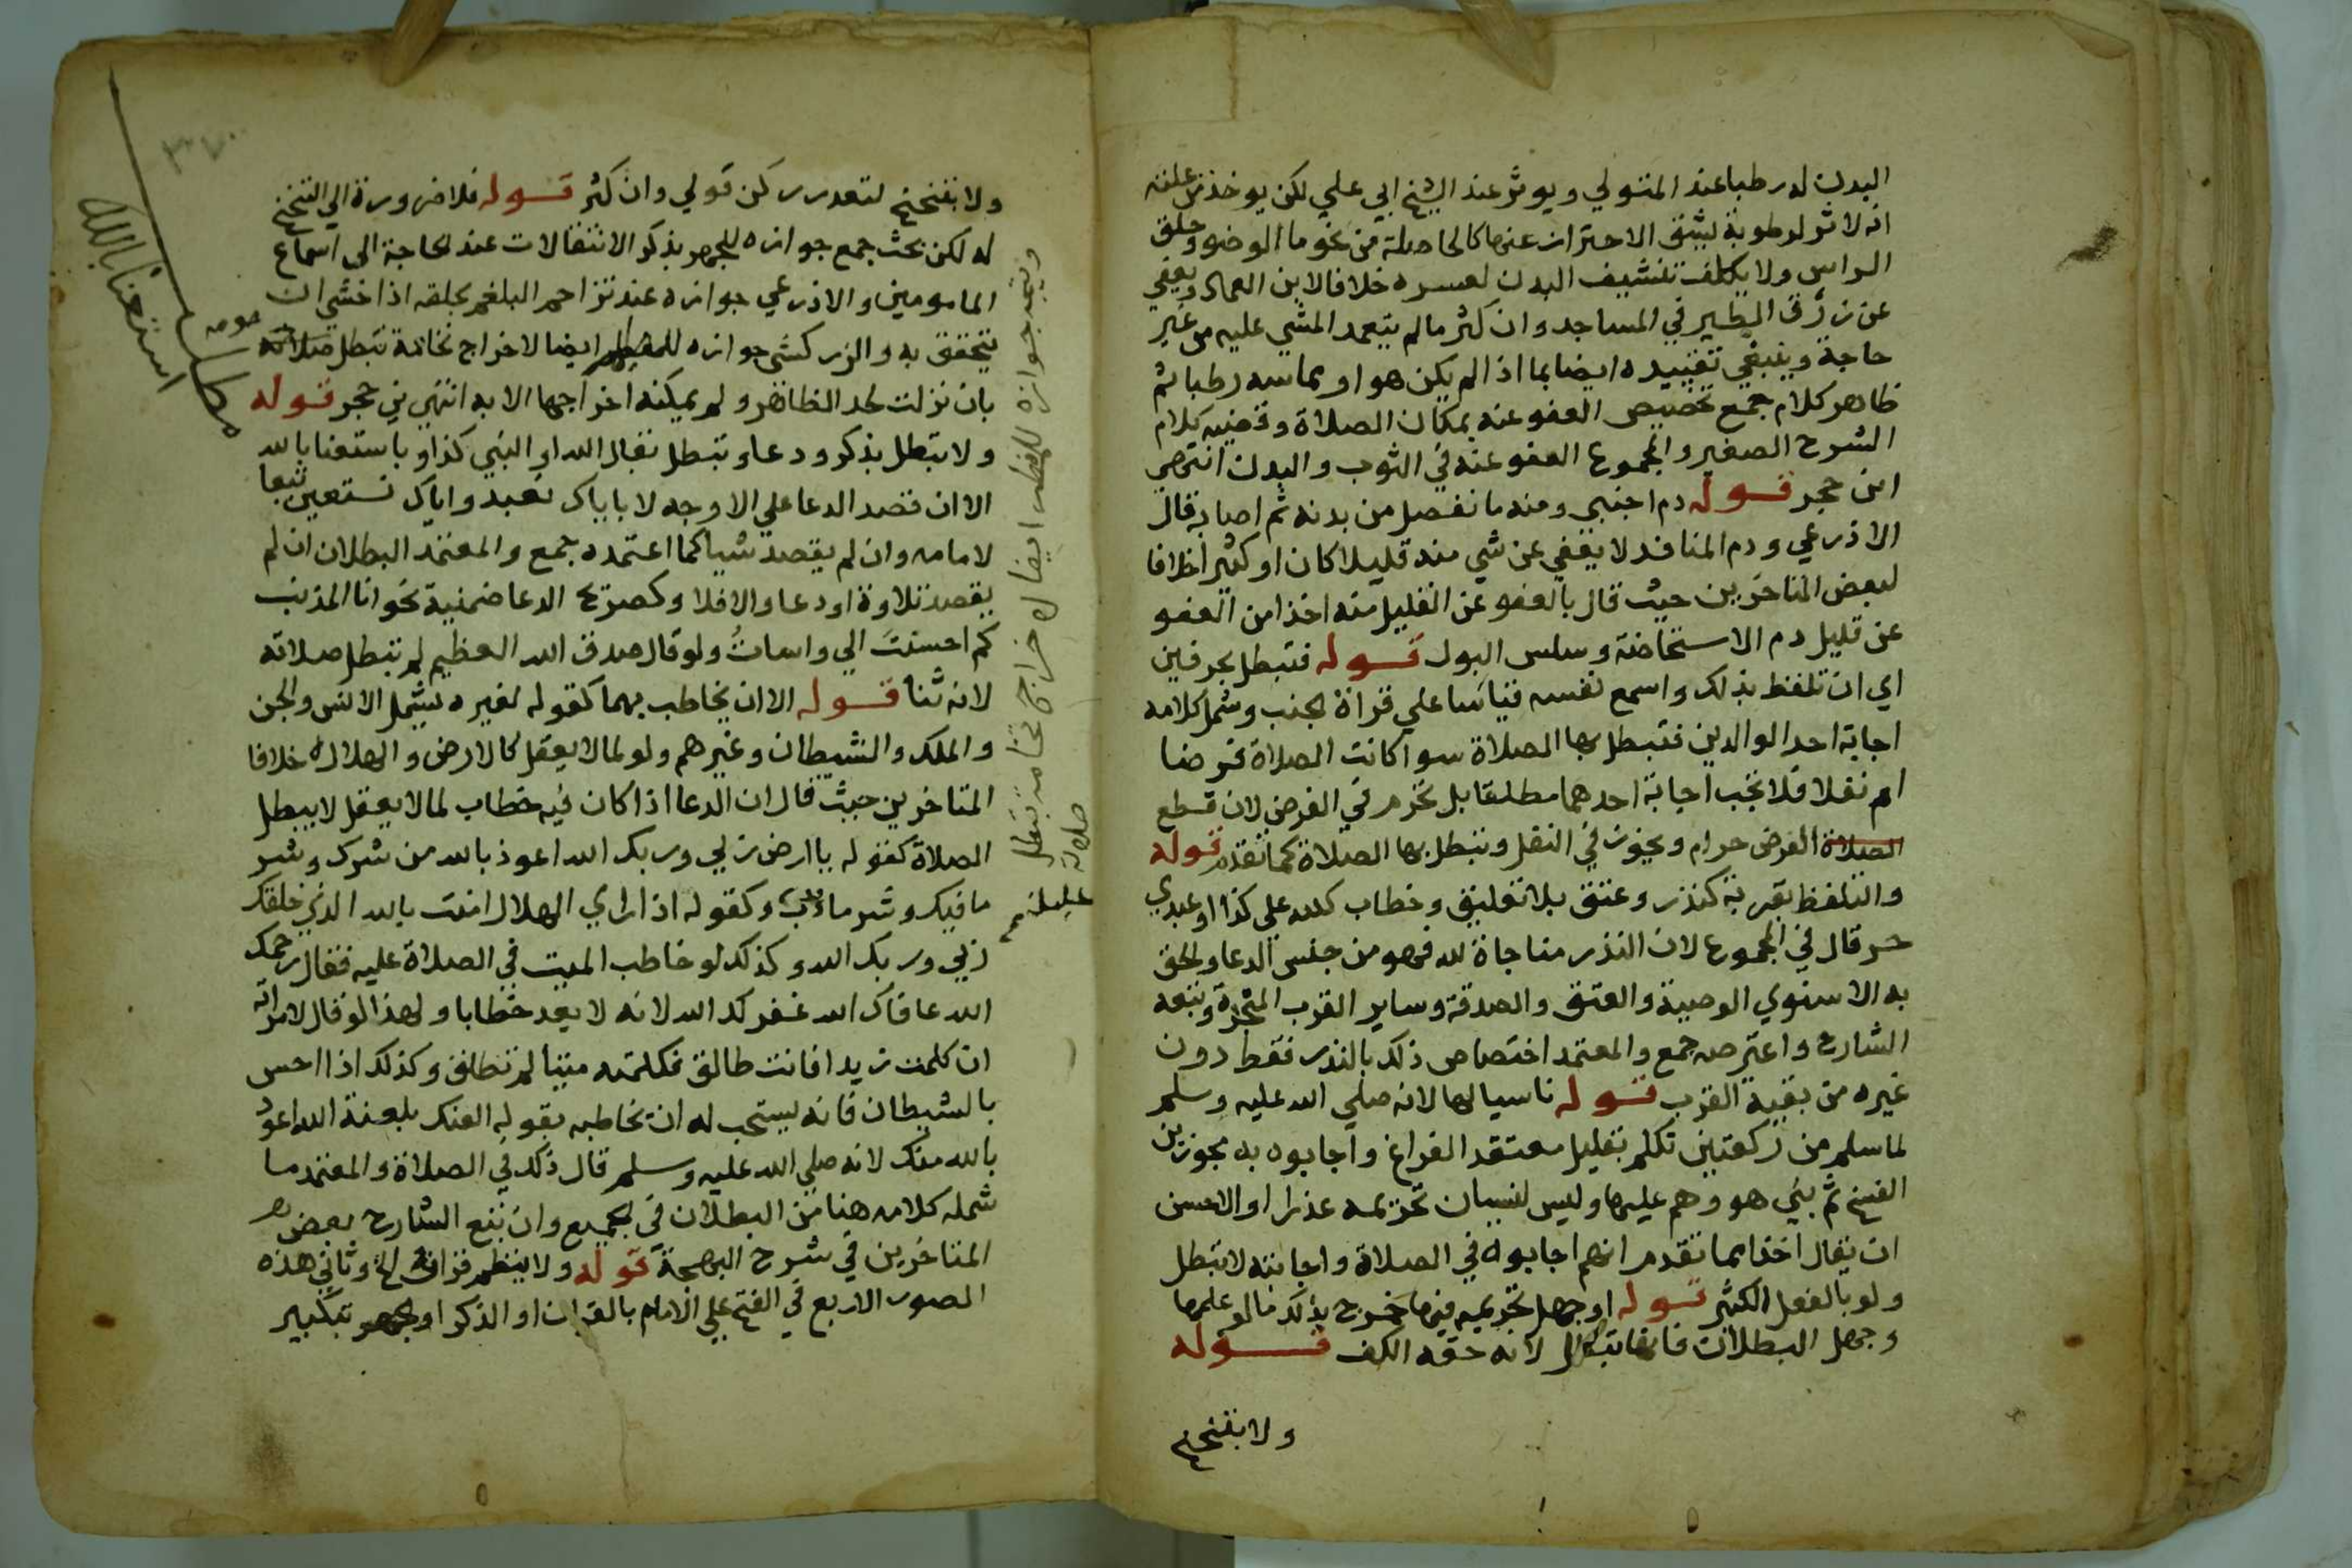 البدن له رطبا عند المتولي ويوثر عند الشيخ ابي علي لكن يوخذ من علته
انه لا اثر لرطوبة يشق الاحتراز عنها كالحاصلة من نحو ما الوضوء وحلق
الراس ولا يكلف تنشيف البدن لعسره خلافا لابن العماد ويعفي
عن زرق الطير في المساجد وان كثر ما لم يتعمد المشي عليه من غير
حاجة وينبغي تقييده ايضا بما اذا لم يكن هو او مماسه رطبا ثم
ظاهر كلام جمع تخصيص العفو عنه بمكان الصلاة وقضيه كلام
الشرح الصغير والمجموع العفو عنه في الثوب والبدن انتهي
ابن حجر قوله دم اجنبي ومنه ما نفصل من بدنه ثم اصابه قال
الاذرعي ودم المنافذ لا يعفي عن شي منه قليلا كان او كثيرا خلافا
لبعض المتاخرين حيث قال بالعفو عن القليل منه اخذا من العفو
عن قليل دم الاستحاضة وسلس البول قوله فتبطل بحرفين
اي ان تلفظ بذلك واسمع نفسه قياسا علي قراة الجنب وشمل كلامه
اجابة احد الوالدين فتبطل بها الصلاة سوا كانت الصلاة فرضا
ام نفلا فلا تجب اجابة احدهما مطلقا بل تحرم في الفرض لان قطع
الصلاة الفرض حرام ويجوز في النفل وتبطل بها الصلاة كما تقدم قوله
والتلفظ بقربة كنذر وعتق بلا تعليق وخطاب كلله علي كذا او عبدي
حر قال في المجموع لان النذر مناجاة لله فهو من جنس الدعا والحق
به الاسنوي الوصية والعتق والصدقة وساير القرب المنجزة وتبعه
الشارح واعترضه جمع والمعتمد اختصاص ذلك بالنذر فقط دون
غيره من بقية القرب قوله ناسيا لها لانه صلي الله عليه وسلم
لما سلم من ركعتين تكلم بقليل معتقد الفراغ واجابوه به مجوزين
الفسخ ثم بني هو وهم عليها وليس لنسيان تحريمه عذرا او الاحسن
ان يقال اخذا مما تقدم انهم اجابوه في الصلاة واجابته لا تبطل
ولو بالفعل الكثير قوله او جهل تحريمه فيها خرج بذلك ما لو علمها
وجهل البطلان فانها تبطل لانه حقه الكف قوله
ولا بتنحنح
ولا بتنحنح لتعذر ركن قولي وان كثر قوله فلا ضرورة الي التنحنح
له لكن بحث جمع جوازه للجهر بذكر الانتقالات عند الحاجة الي اسماع
المامومين والاذرعي جوازه عند تزاحم البلغم بحلقه اذا خشي ان
يتخنق به والزركشي جوازه للمفطر ايضا لاخراج نخامة تبطل صلاته
بان نزلت لحد الظاهر ولم يمكنه اخراجها الا به انتهي بن حجر قوله
ولا تبطل بذكر ودعا وتبطل بقال الله او النبي كذا او باستعنا بالله
الا ان قصد الدعا علي الاوجه لا باياك نعبد واياك نستعين تبعا
لامامه وان لم يقصد شيا كما اعتمده جمع والمعتمد البطلان ان لم
يقصد تلاوة او دعا والا فلا وكصريح الدعا ضمنية نحو انا المذنب
كم احسنت الي واسات ولو قال صدق الله العظيم لم تبطل صلاته
لانه ثنا قوله الا ان يخاطب بهما كقوله لغيره يشمل الانس والجن
والملك والشيطان وغيرهم ولو لما لا يعقل كالارض والهلال خلافا
المتاخرين حيث قال ان الدعا اذا كان فيه خطاب لما لا يعقل لا يبطل
الصلاة كقوله يا ارض ربي وربك الله اعوذ بالله من شرك وشر
ما فيك وشر ما دب وكقوله اذا راي الهلال امنت بالله الذي خلقك
ربي وربك الله وكذلك لو خاطب الميت في الصلاة عليه فقال رحمك
الله عافاك الله غفر لك الله لانه لا يعد خطابا ولهذا لو قال لامراته
ان كلمت زيدا فانت طالق فكلمته ميتا لم تطلق وكذلك اذا احس
بالشيطان فانه يستحب له ان يخاطبه بقوله العنك بلعنة الله اعوذ
بالله منك لانه صلي الله عليه وسلم قال ذلك في الصلاة والمعتمد ما
شمله كلامه هنا من البطلان في الجميع وان تبع الشارح بعض
المتاخرين في شرح البهجة قوله ولا بنظم قران الخ وثاني هذه
الصور الاربع في الفتح علي الامام بالقران او الذكر او الجهر بتكبير
ويتجه جوازه للمفطر ايضا لاخراج نخامة تبطل
صلاته
مطلب
استعنا بالله
٣٧